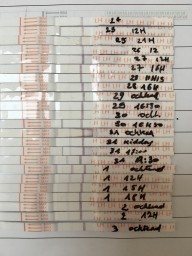 24
25 12H
25 21H
26 12
27 12H
27 16H
28 11H15
28 16H
29 ochtend
29 16:30
30 och
30 16H30
31 ochtend
31 middag
31
31 21:30
1 ochtend
1 12H
1 15H
1 18H
2 ochtend
2 12H
3 ochtend